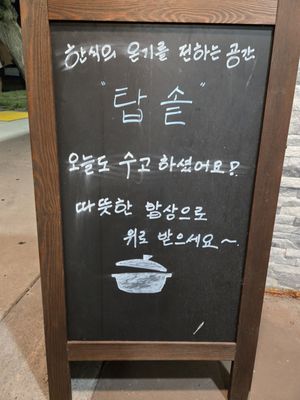 한식의 온기를 전하는 공간
"탑솥"
오늘도 수고 하셨어요?
따뜻한 밥상으로
위로 받으세요~